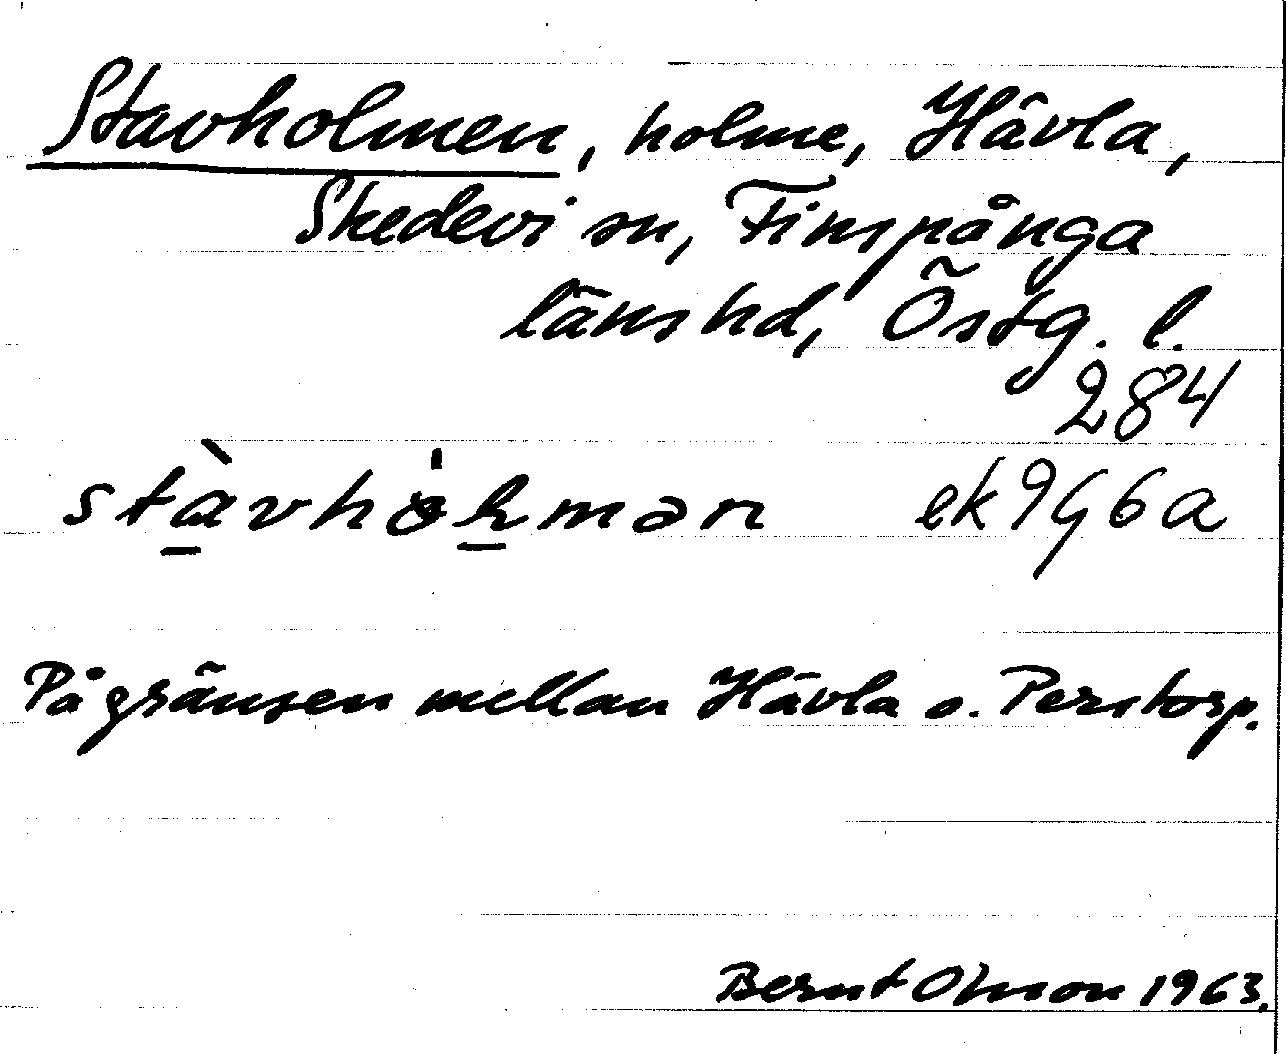 Stavholmen, holme, Hävla,
Skedevi sn, Finspånga
läns hd, Östg. l.
284
stàvhòlmən ek 9G6a
På gränsen mellan Hävla o. Perstorp.
Bernt Olsson 1963.